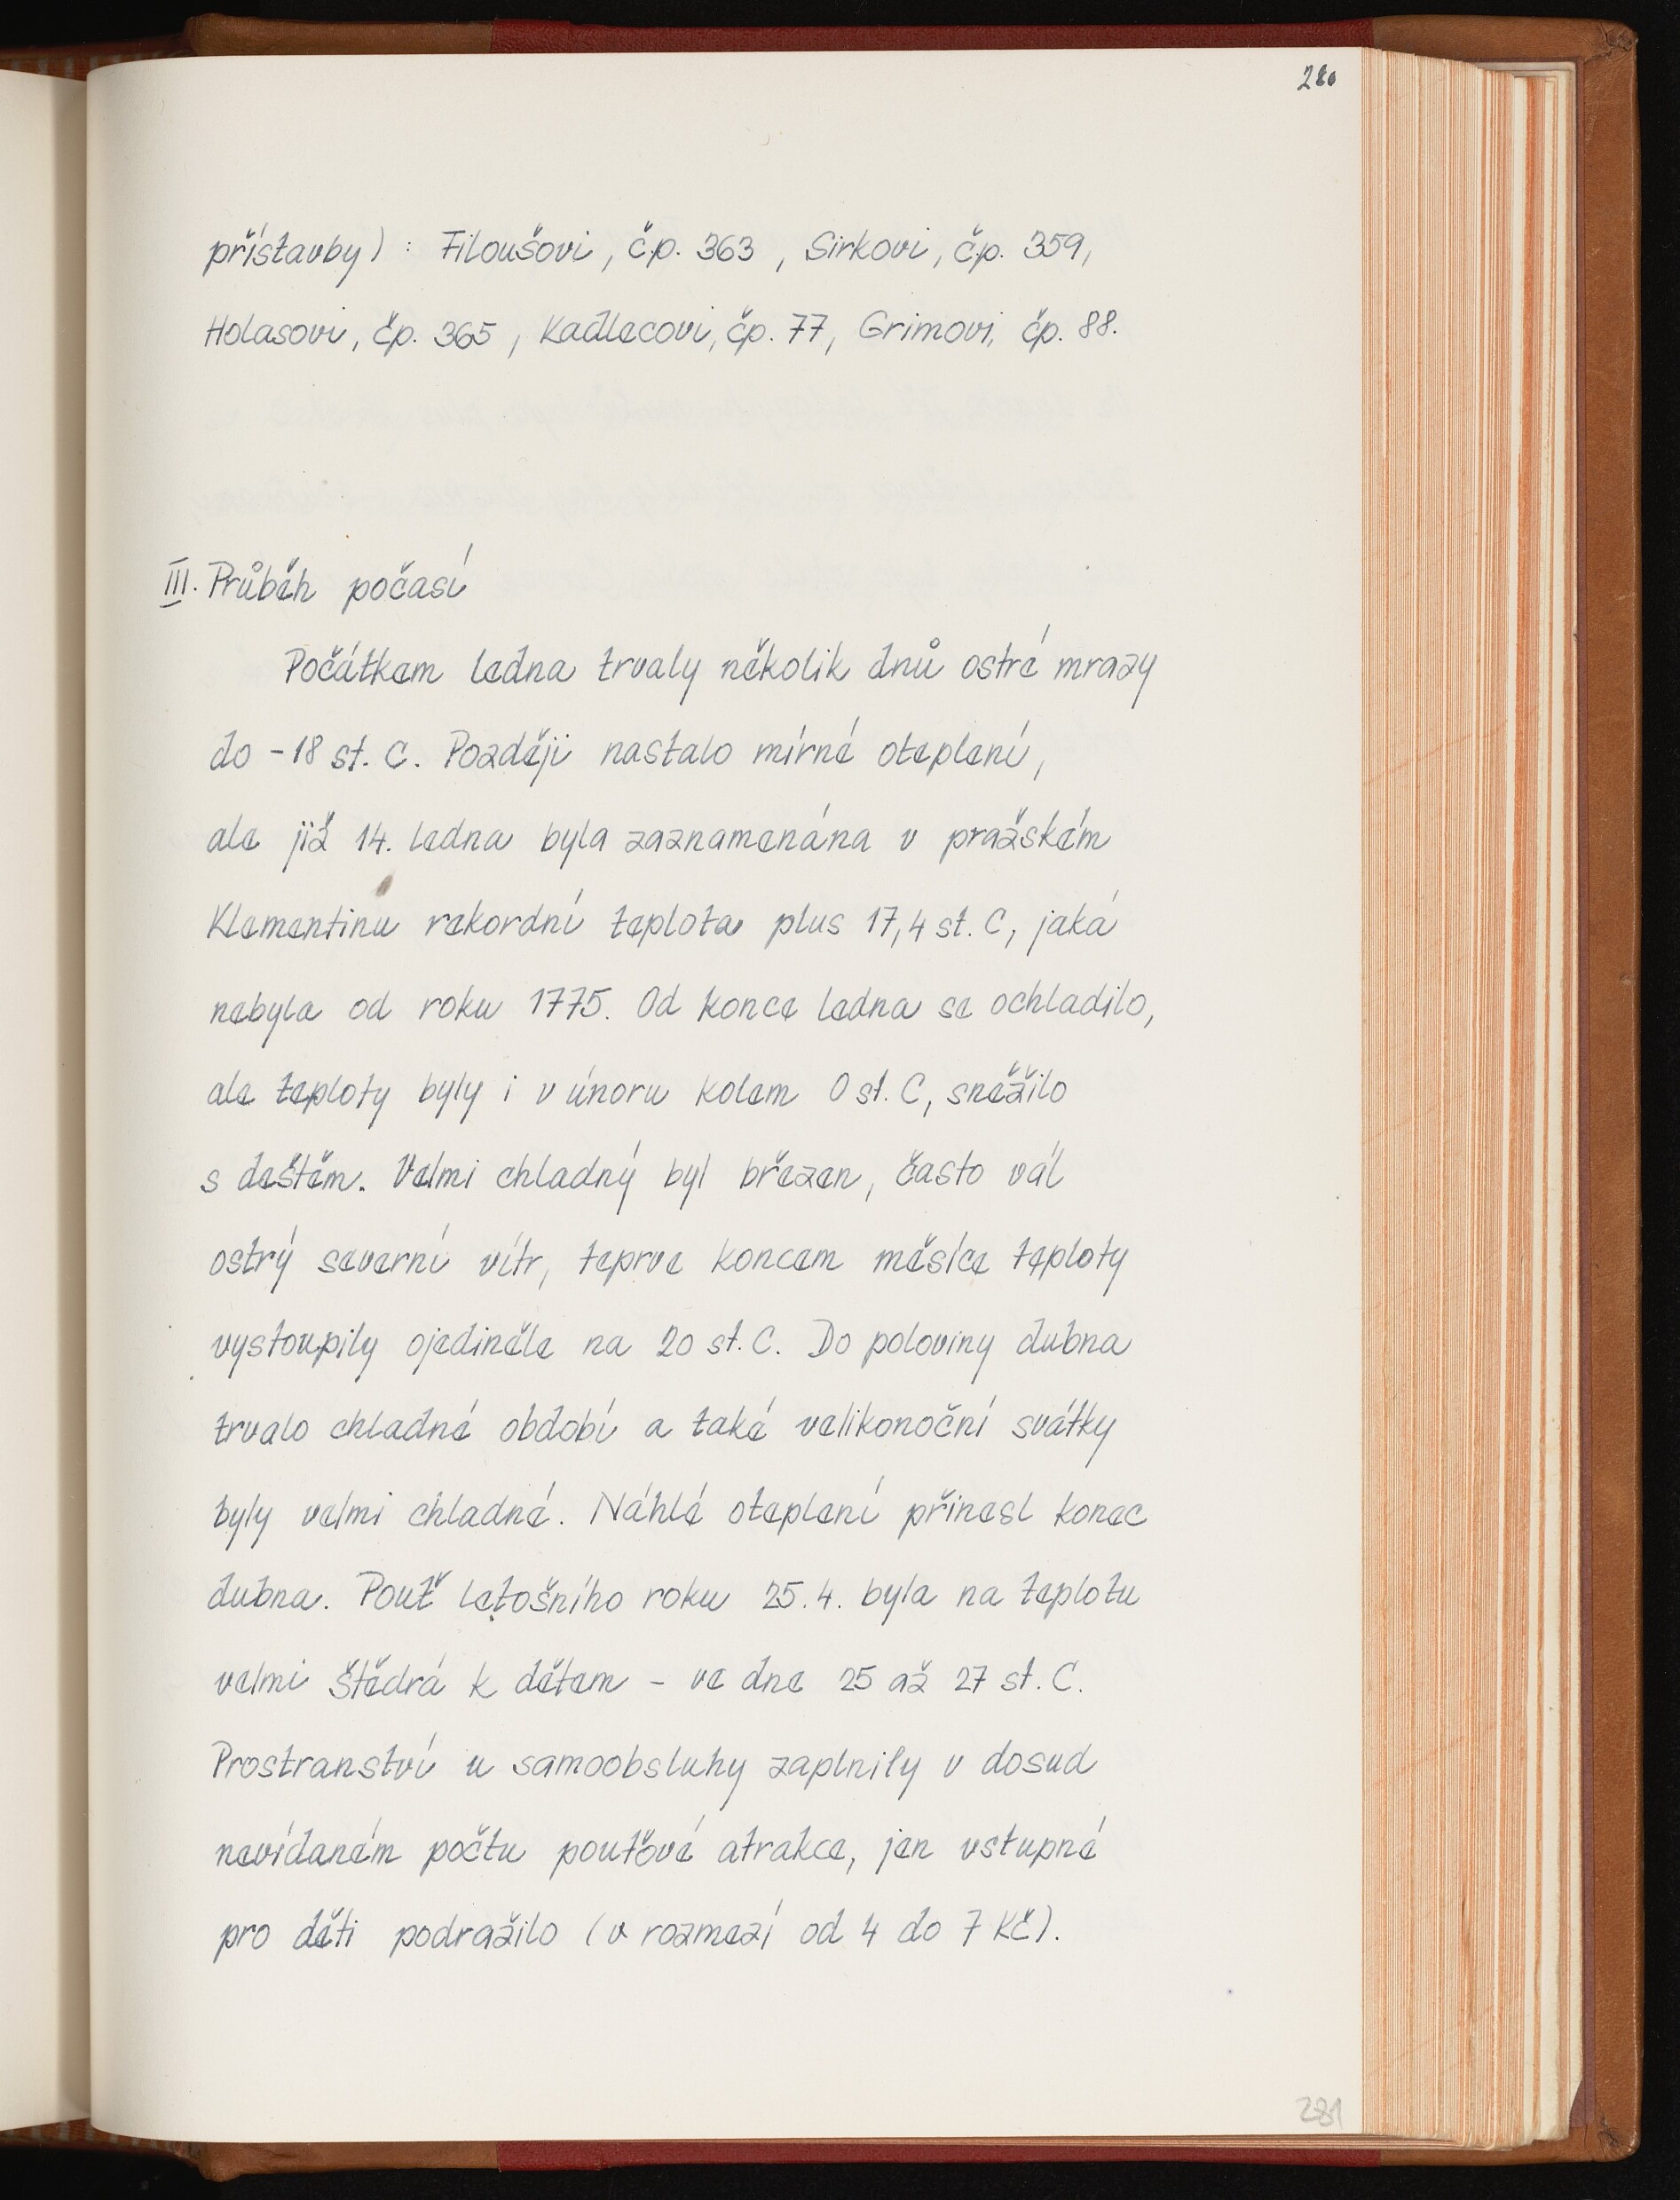 280
přístavby) : Filoušovi, čp. 363, Sirkovi, čp. 359,
Holasovi, čp. 365, Kadlecovi, čp. 77, Grimovi, čp. 88.
III. Průběh počasí
Počátkem ledna trvaly několik dnů ostré mrazy
do -18 st. C. Později nastalo mírné oteplení,
ale již 14. ledna byla zaznamenána v pražském
Klementinu rekordní teplota plus 17,4 st. C, jaká
nebyla od roku 1775. Od konce ledna se ochladilo,
ale teploty byly i v únoru kolem 0 st. C, sněžilo
s deštěm. Velmi chladný byl březen, často vál
ostrý severní vítr, teprve koncem měsíce teploty
vystoupily ojediněle na 20 st. C. Do poloviny dubna
trvalo chladné období a také velikonoční svátky
byly velmi chladné. Náhlé oteplení přinesl konec
dubna. Pouť letošního roku 25. 4. byla na teplotu
velmi štědrá k dětem - ve dne 25 až 27 st. C.
Prostranství u samoobsluhy zaplnily v dosud
nevídaném počtu pouťové atrakce, jen vstupné
pro děti podražilo (v rozmezí od 4 do 7 Kč).
281